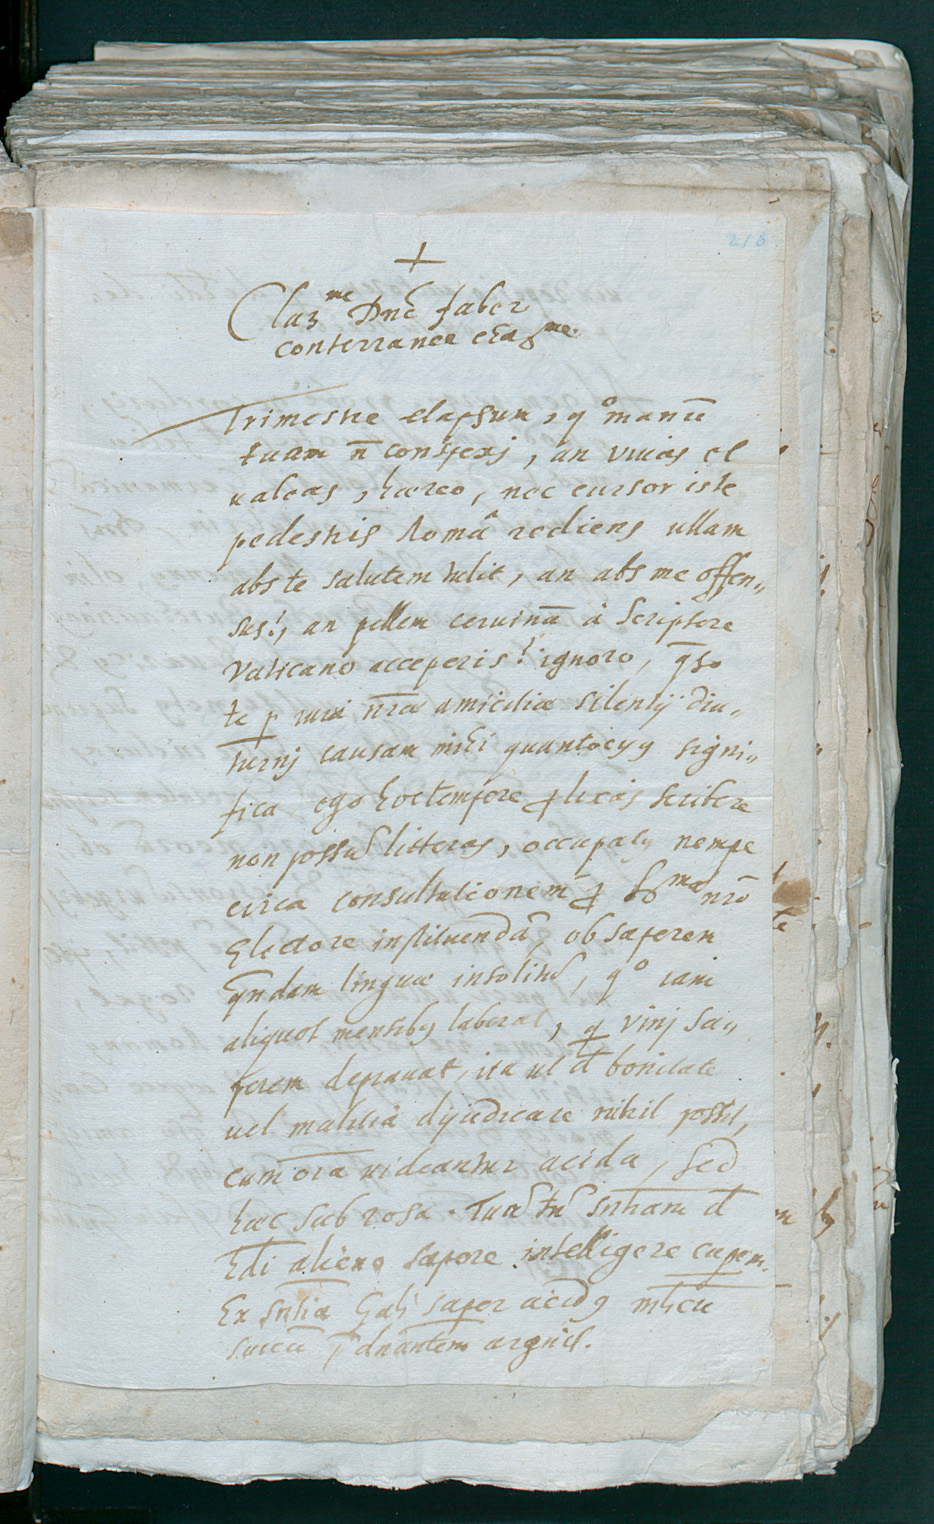 218
+
Clar^me Dnē Faber
conterranee chāṛ^me.
Trimestre elapsum, q° manū
tuam n̄ conspexj, an viuas et
ualeas, hæreo, nec cursor iste
pedestris Româ rediens ullam
abs te salutem tulit, an abs me offen„
sus!, an pellem ceruinā à Scriptore
Vaticano acceperis! ignoro, q̄so
te p iura nr̄a amicitiæ silentij diu„
turnj causam mihi quantocyꝰ signi„
fica ego hoc tempore ꝓlixas scribere
non possū litteras, occupatꝰ nempe
circa consultationem ꝓ S^mo nr̄o
Electore instituendâ, ob saporem
q̄ndam linguæ insolitū, q° iam
aliquot mensibꝰ laborat, q vinj sa„
porem deprauat, ita ut d̄ bonitate
uel malitiâ dijudicare nihil possit,
cum oīa uideantur acida, sed
hæc sub rosa. Tuā tn̄ sn̄tiam d̄
alieno sapore intelligere cuperem.
Ex sn̄tia Galē sapor acidꝰ
succū p̄dn̄antem arguit.